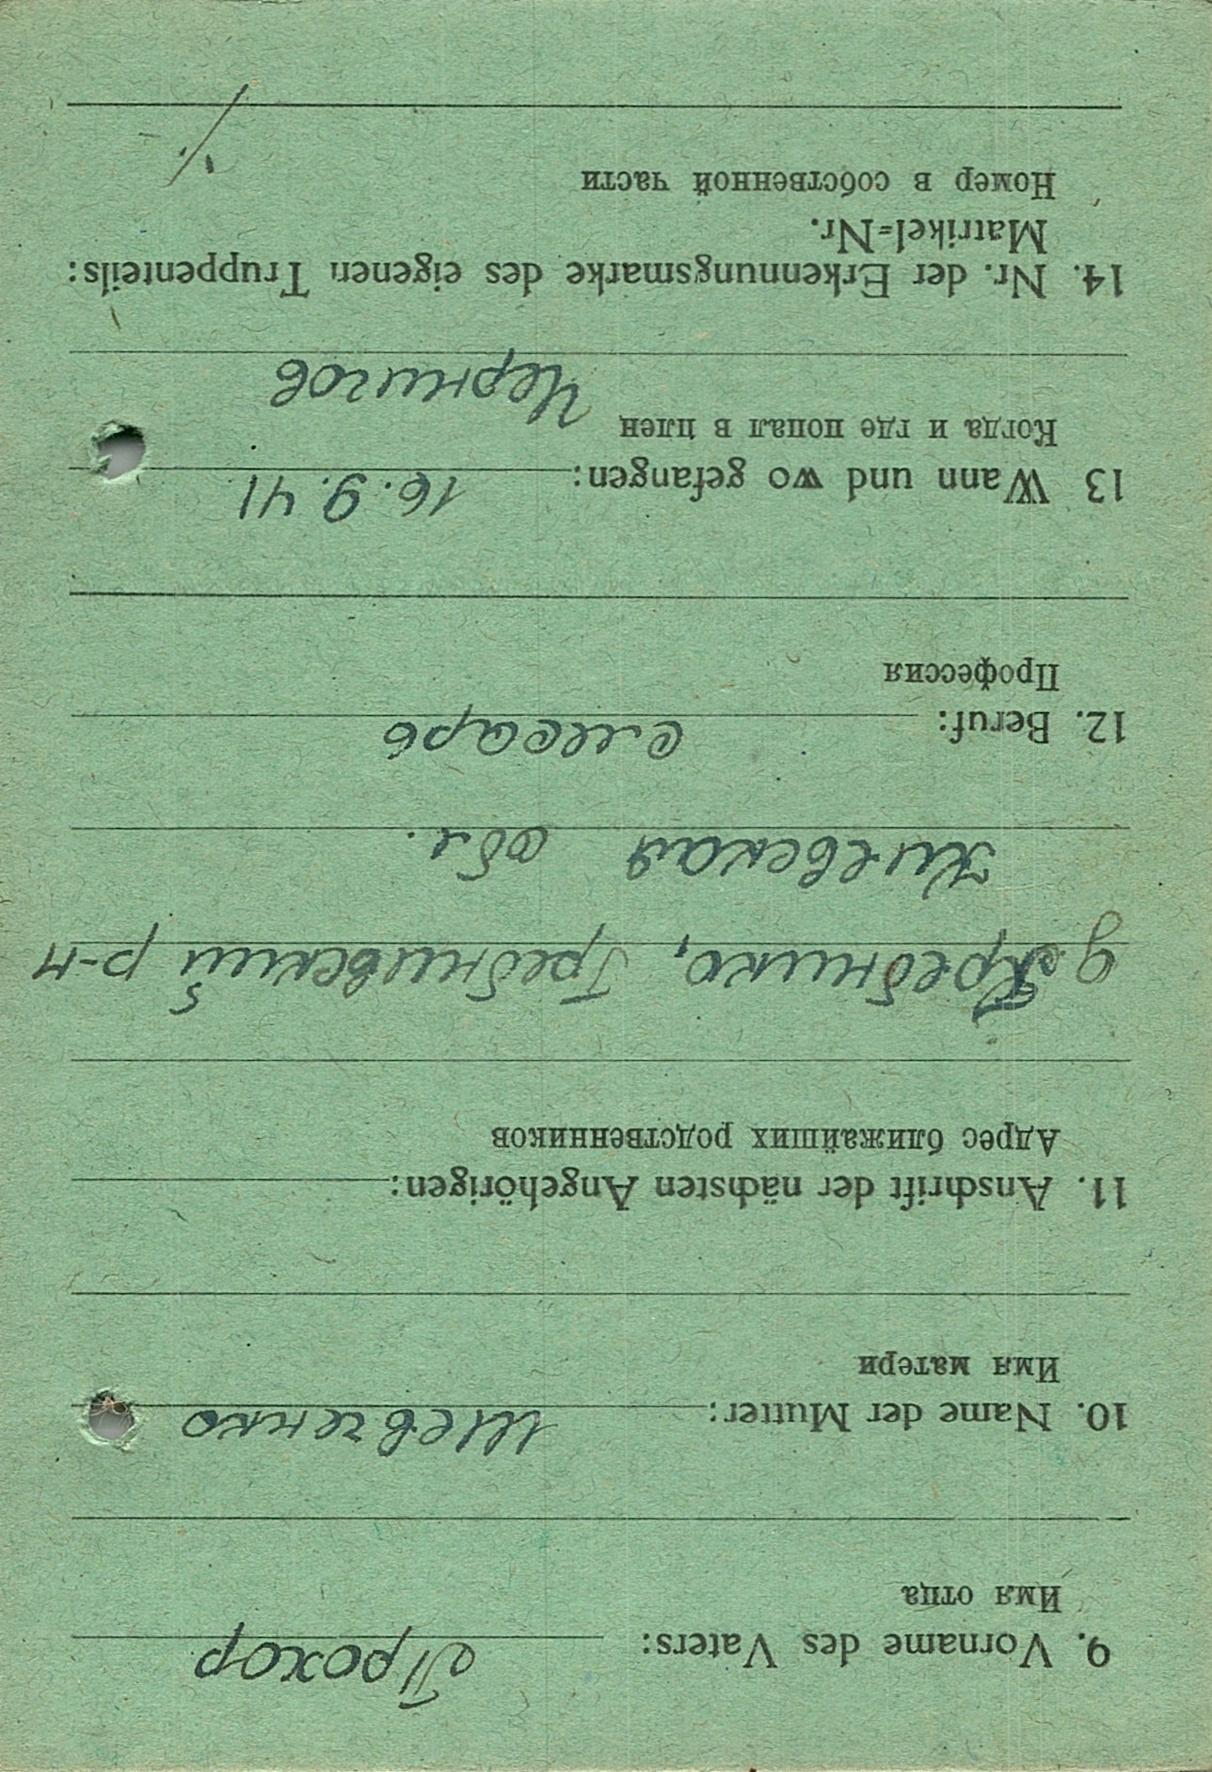 9. Vorname des Vaters: Прохор
Имя отца
10. Name der Mutter: Шевченко
Имя матери
11. Anschrift der nächsten Angehörigen:
Адрес ближайших родственников
д Гребнико, Гребнивский р-н
Киевская обл.
12. Beruf: слесарь
Профессия
13 Wann und wo gefangen: 16.9.41
Когда и где попал в плен Чернигов
14. Nr. der Erkennungsmarke des eigenen Truppenteils:
Matrikel=Nr.
Номер в собственной части